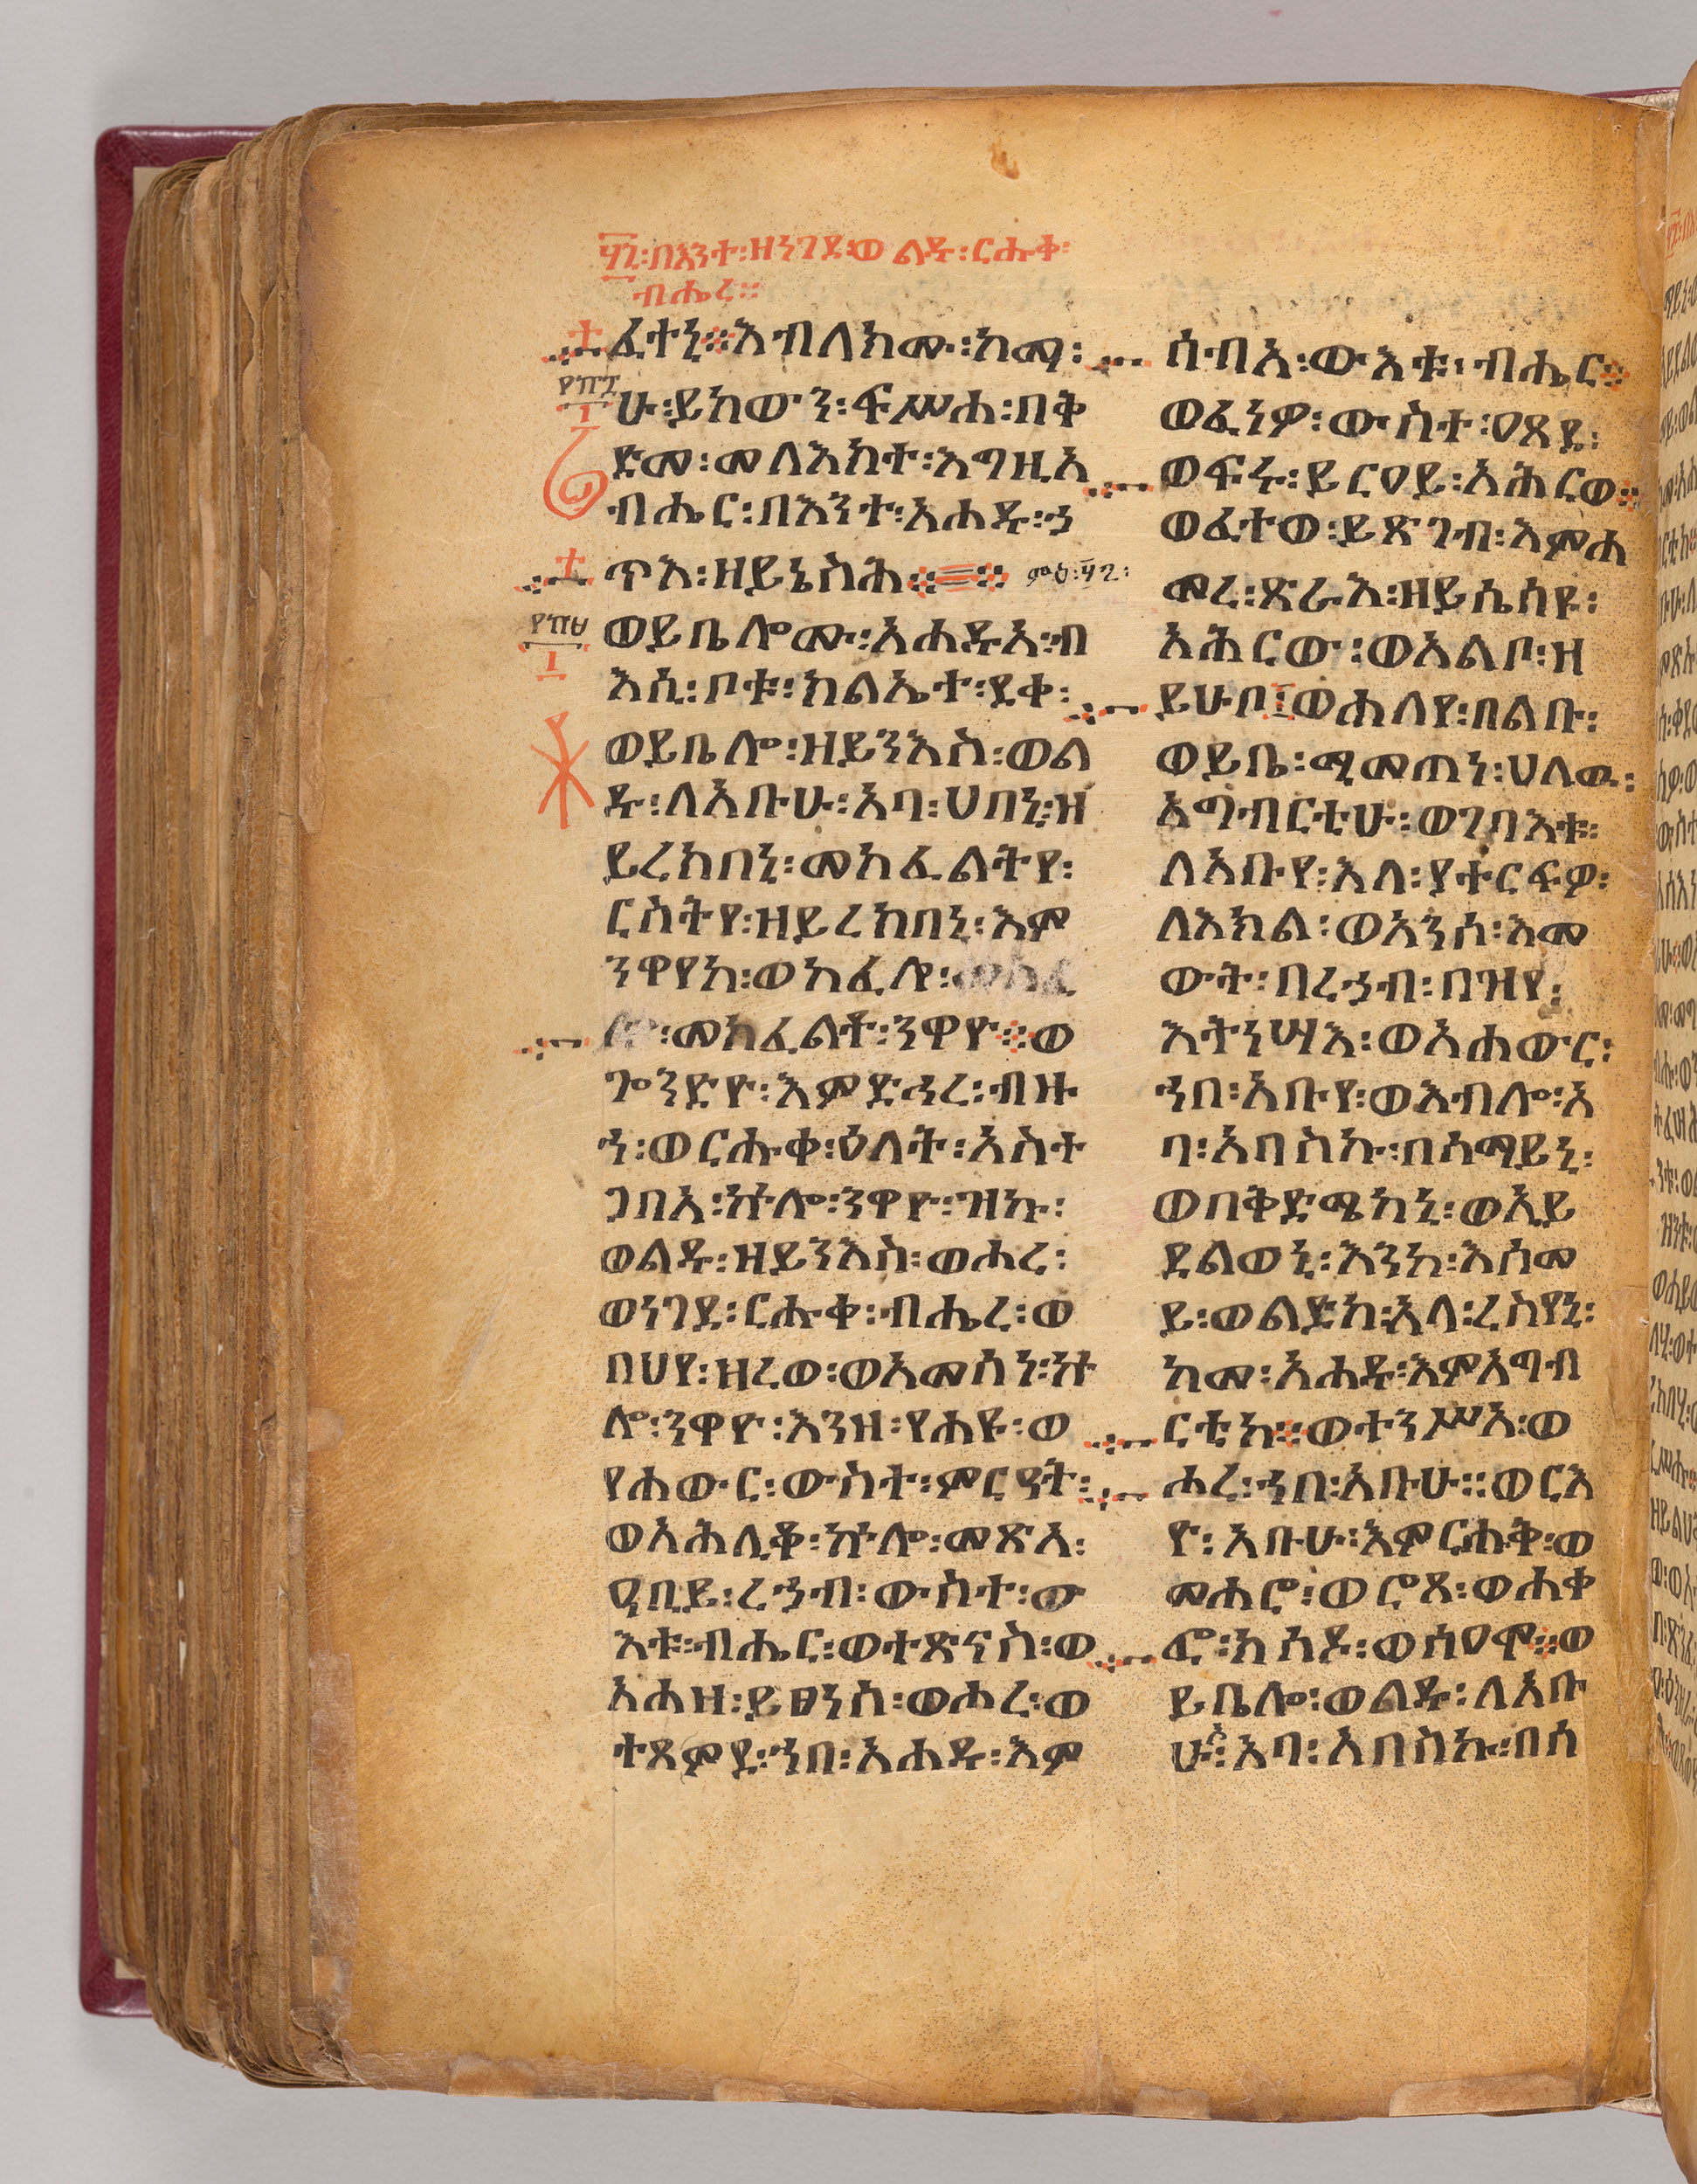 ፶፫፡በእንተ፡ዘነገደ፡ወልዱ፡ርሑቀ፡
ብሔረ፡፡
ፈተኒ፨እብለክሙ፡ከማ፡
ሁ፡ይከውን፡ፍሥሐ፡በቅ
ድመ፡መለእክተ፡እግዚአ
ብሔር፡በእንተ፡አሐዱ፡ኃ
ጥእ፡ዘይኔስሕ፨ ምዕ፡፶፫፡
ወይቤሎሙ፡አሐዱአ፡ብ
እሲ፡ቦቱ፡ክልኤተ፡ደቀ፡
ወይቤሎ፡ዘይንእስ፡ወል
ዱ፡ለአቡሁ፡አባ፡ሀበኒ፡ዘ
ይረከበኒ፡መክፈልትየ፡
ርስትየ፡ዘይረከበኒ፡እም
ንዋየከ፡ወከፈሎ፡ወከፈ
ሎ፡መክፈልቶ፡ንዋዮ፨ወ
ጐንድዮ፡እምድኅረ፡ብዙ
ኅ፡ወርሑቀ፡ዕለት፡አስተ
ጋበአ፡ኵሎ፡ንዋዮ፡ዝኩ፡
ወልዱ፡ዘይንእስ፡ወሖረ፡
ወነገደ፡ርሑቀ፡ብሔረ፡ወ
በህየ፡ዘረወ፡ወአመሰነ፡ኵ
ሎ፡ንዋዮ፡እንዘ፡የሐዩ፡ወ
የሐውር፡ውስተ፡ምርዓት፡
ወአሕሊቆ፡ኵሎ፡መጽአ፡
ዓቢይ፡ረኃብ፡ውስተ፡ው
እቱ፡ብሔር፡ወተጽናስ፡ወ
አሐዘ፡ይፀነስ፡ወሖረ፡ወ
ተጸምደ፡ኀበ፡አሐዱ፡እም
ሰብአ፡ውእቱ፡ብሔር፨
ወፈነዎ፡ውስተ፡ዐጸዴ፡
ወፍሩ፡ይርዐይ፡አሕርወ፨
ወፈተወ፡ይጽገብ፡እምሐ
መረ፡ጽራእ፡ዘይሴሰዩ፡
አሕርው፡ወአልቦ፡ዘ
ይሁቦ፡ወሐለየ፡በልቡ፡
ወይቤ፡ሚመጠነ፡ሀለዉ፡
አግብርቲሁ፡ወገባእቱ፡
ለአቡየ፡እለ፡ያተርፍዎ፡
ለእክል፡ወአንሰ፡እመ
ውት፡በረኃብ፡በዝየ፡
እትነሣእ፡ወአሐውር፡
ኀበ፡አቡየ፡ወእብሎ፡አ
ባ፡አበስኩ፡በሰማይኒ፡
ወበቅድሜከኒ፡ወኢይ
ደልወኒ፡እንከ፡እሰመ
ይ፡ወልድከ፡አላ፡ረስየኒ፡
ከመ፡አሐዱ፡እምአግብ
ርቲከ፨ወተንሥአ፡ወ
ሖረ፡ኀበ፡አቡሁ፡፡ወርእ
ዮ፡አቡሁ፡እምርሑቅ፡ወ
መሐሮ፡ወሮጸ፡ወሐቀ
ፎ፡ክሳዶ፡ወሰዐሞ፨ወ
ይቤሎ፡ወልዱ፡ለአቡ
ሁ፡አባ፡አበስኩ፡በሰ